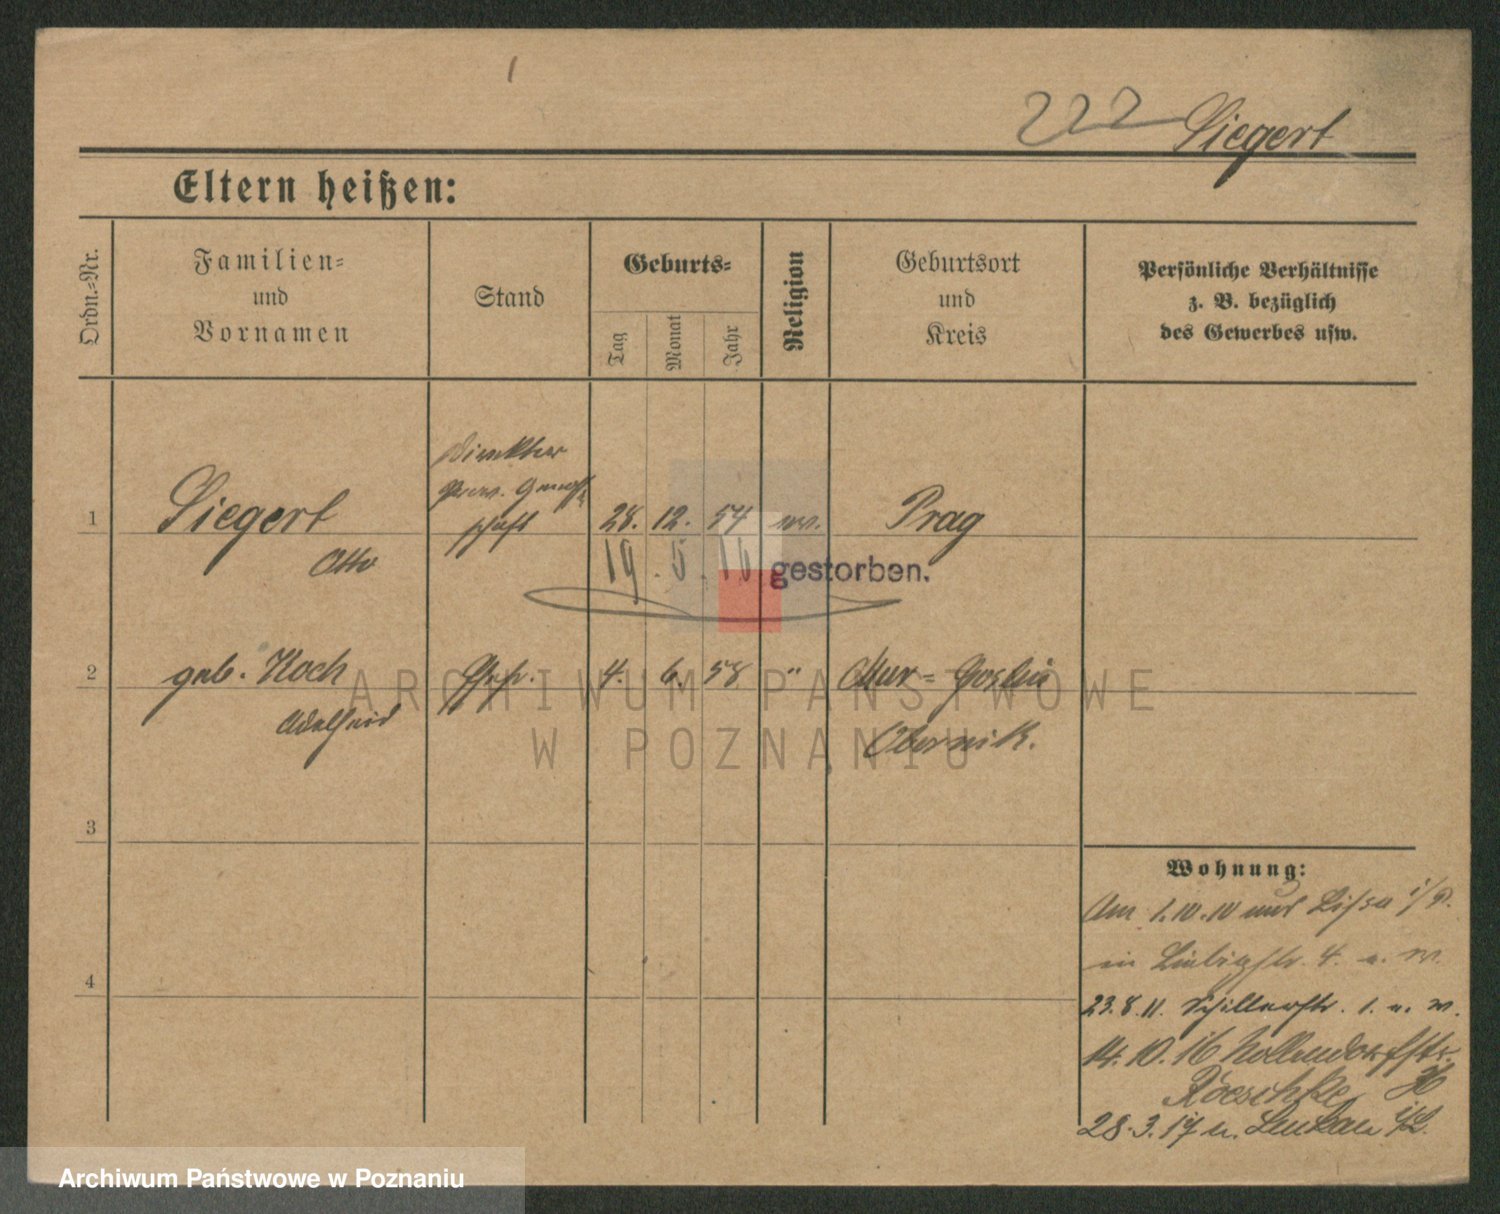 222 Siegert
Eltern heißen:
Ordn.-Nr.
Familien-
und
Vornamen
Stand
Geburts-
Tag
Monat
Jahr
Religion
Geburtsort
und
Kreis
Persönliche Verhältnisse
z. B. bezüglich
des Gewerbes usw.
Direktor
schaft
1 Siegert 28. 12. 54 Prag
Otto
19. 5. 16 gestorben.
2 geb. Koch Ehefr. 4. 6. 58 " Mur-Goslin
Adelheid
Obornik.
3
4
Wohnung:
Am 1.10.10 aus Lissa i/P.
in Liebigstr. 4. a. W.
23.8.11. Schillerstr. 1. a. W.
14.10.16 Nollendorfstr.
Roeschke
28.3.17 n.
ARCHIWUM PAŃSTWOWE
W POZNANIU
Archiwum Państwowe w Poznaniu